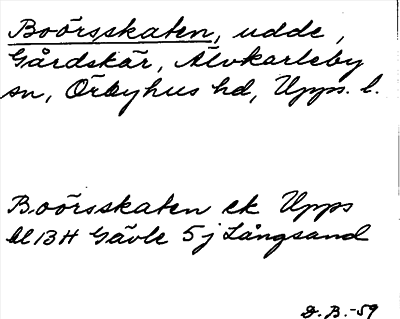 Boörsskaten, udde,
Gårdskär, Älvkarleby
sn, Örbyhus hd, Upps. l.
Boörsskaten ek Upps
bl 13H Gävle 5j Långsand
D.B.-59